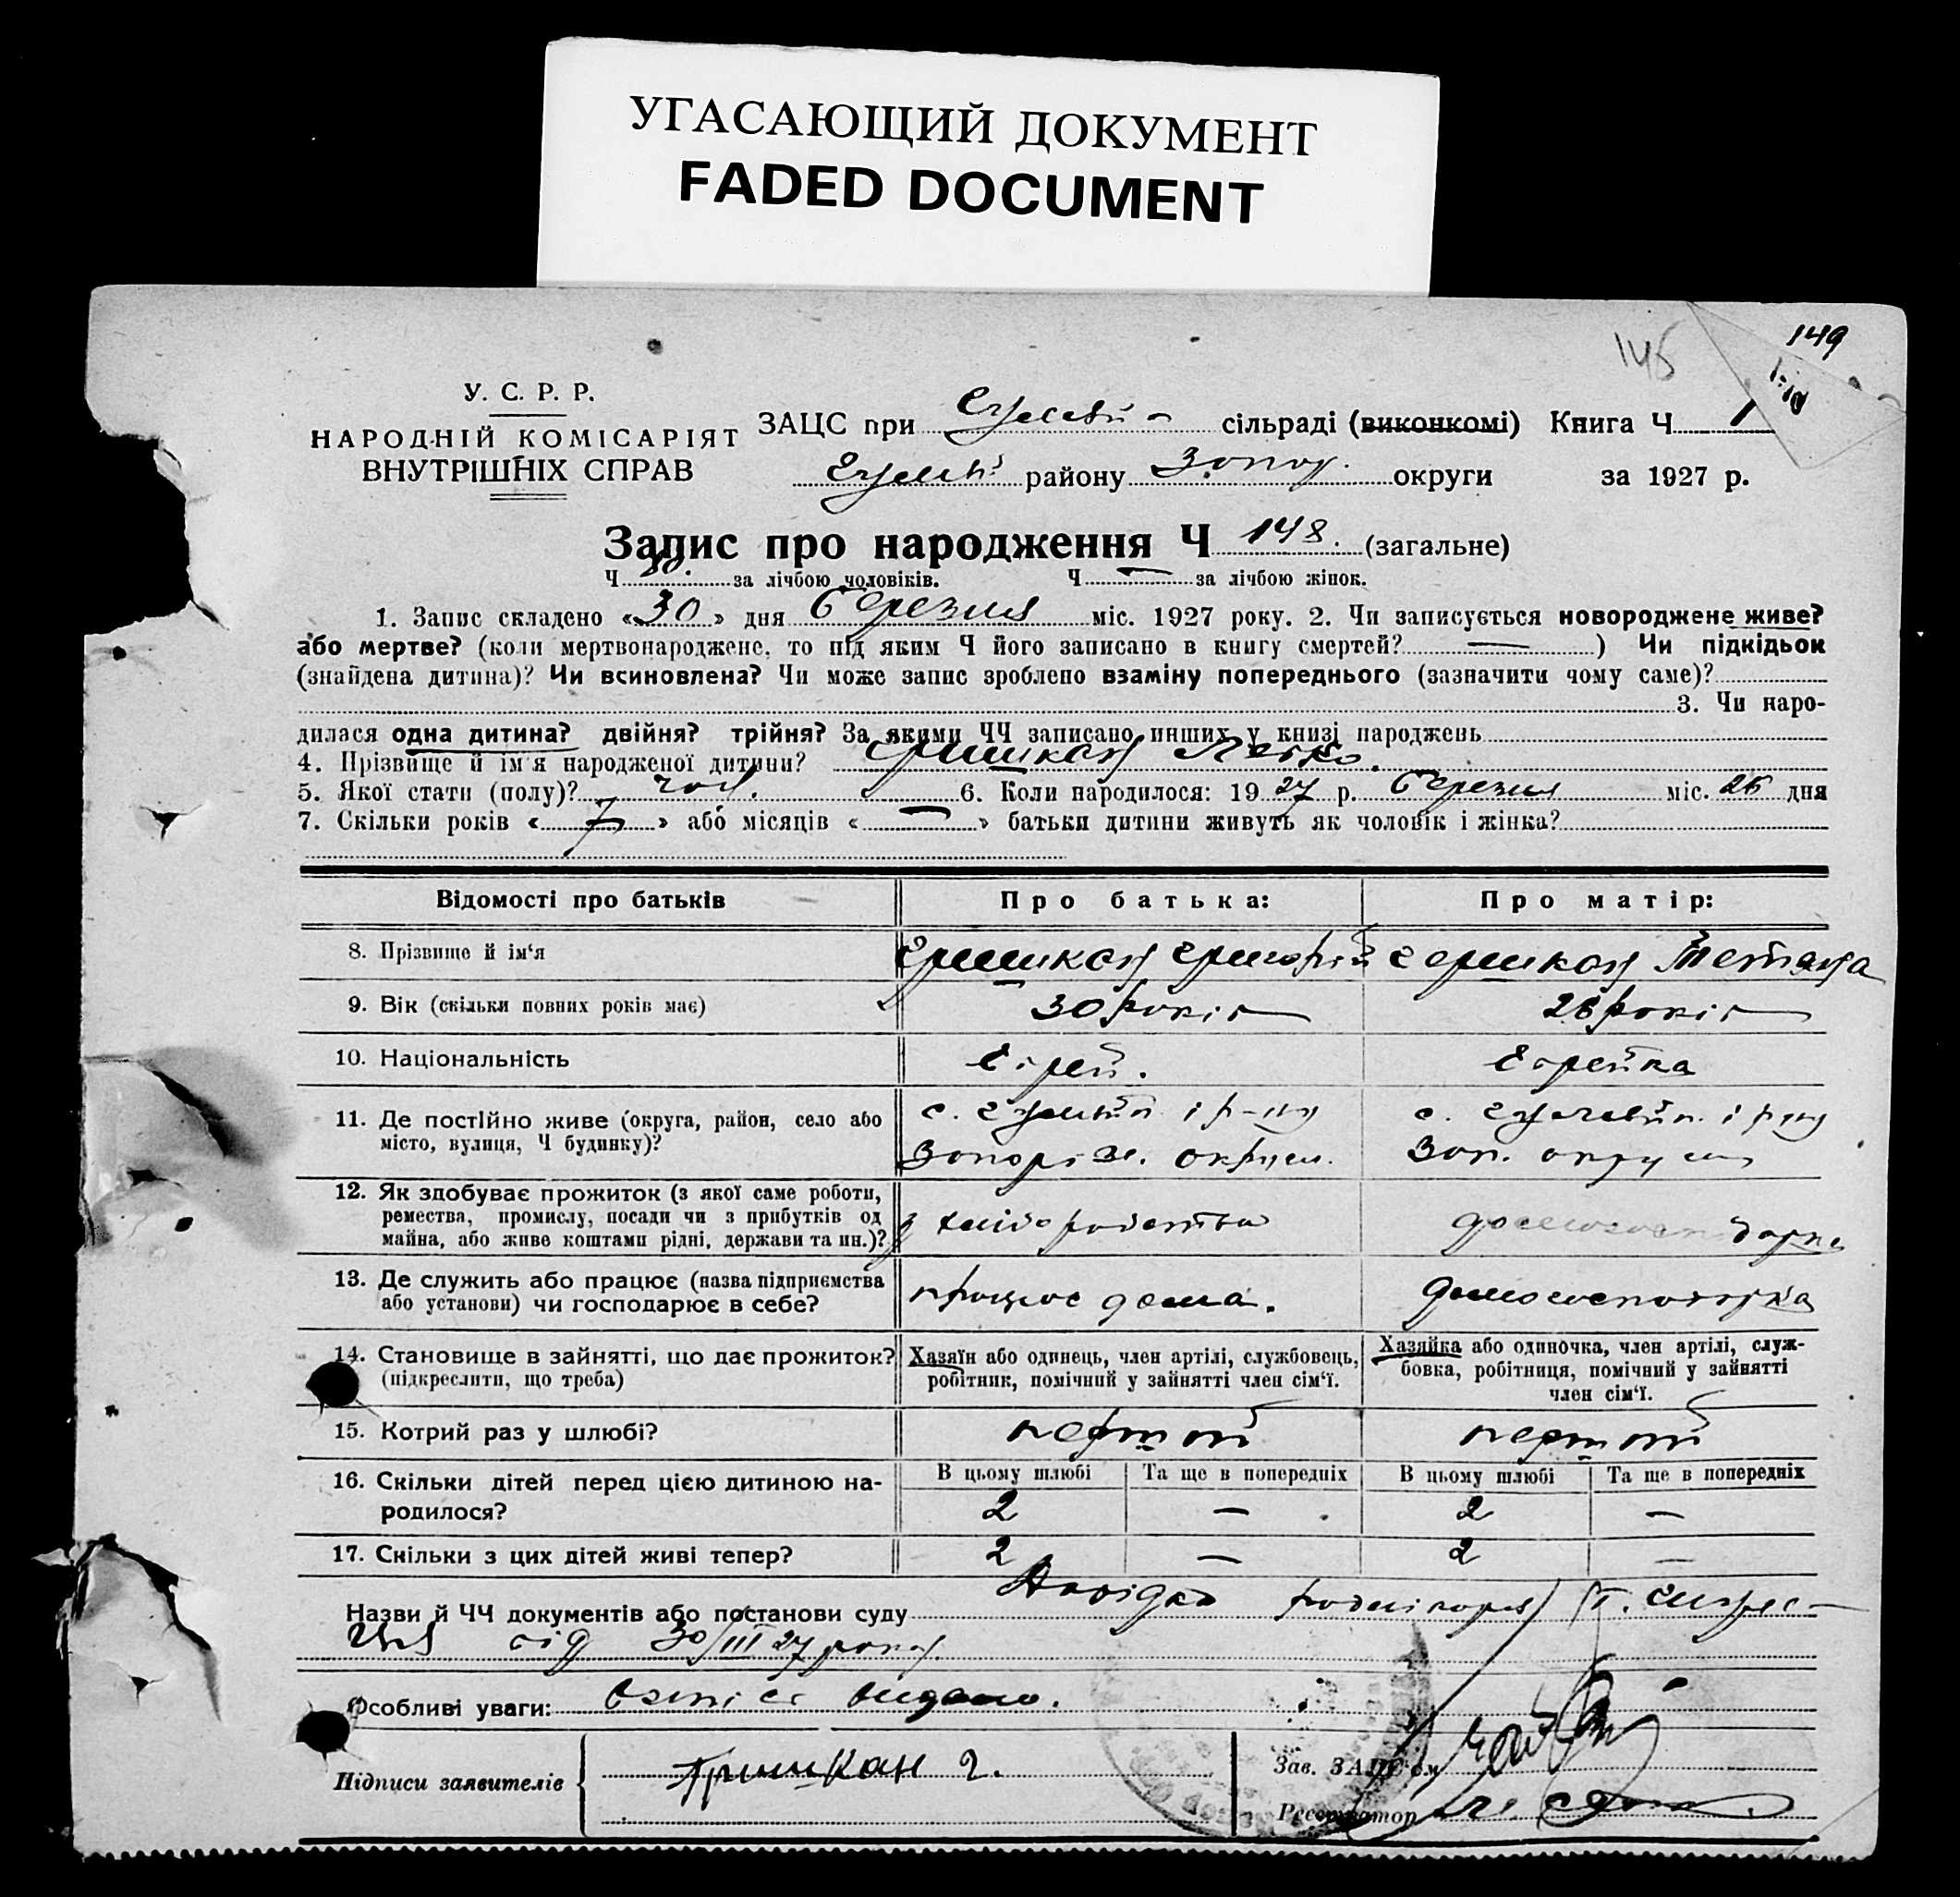 УГАСАЮЩИЙ ДОКУМЕНТ
FADED DOCUMENT
145
149
У. С. Р. Р.
НАРОДНІЙ КОМІСАРІЯТ
ВНУТРІШНІХ СПРАВ
ЗАЦС при сільраді (виконкомі) Книга Ч 1
району Запор. округи за 1927 р.
Запис про народження Ч 148. (загальне)
Ч 80. за лічбою чоловіків. Ч — за лічбою жінок.
1. Запис складено «30» дня березня міс. 1927 року. 2. Чи записується новороджене живе?
або мертве? (коли мертвонароджене, то під яким Ч його записано в книгу смертей? — ) Чи підкідьок
(знайдена дитина)? Чи всиновлена? Чи може запис зроблено взаміну попереднього (зазначити чому саме)?
3. Чи наро-
дилася одна дитина? двійня? трійня? За якими ЧЧ записано инших у книзі народжень
4. Прізвище й ім'я народженої дитини?
5. Якої стати (полу)? чол. 6. Коли народилося: 1927 р. березня міс. 26 дня
7. Скільки років «7» або місяців «—» батьки дитини живуть як чоловік і жінка?
Відомості про батьків Про батька: Про матір:
8. Прізвище й ім'я Гришкан Григорій Гершкан Тетяна
9. Вік (скільки повних років має) 30 років 26 років
10. Національність Єврей. Єврейка
11. Де постійно живе (округа, район, село або с. і р-ну с. і р-ну
місто, вулиця, Ч будинку)? Запоріз. округи. Зап. округи
12. Як здобуває прожиток (з якої саме роботи,
ремества, промислу, посади чи з прибутків од з хліборобства домогосподарка
майна, або живе коштами рідні, держави та ин.)?
13. Де служить або працює (назва підприємства працює дома. домогосподарка
або установи) чи господарює в себе?
14. Становище в зайнятті, що дає прожиток? Хазяїн або одинець, член артілі, службовець, Хазяйка або одиночка, член артілі, служ-
(підкреслити, що треба) робітник, помічний у зайнятті член сім'ї. бовка, робітниця, помічний у зайнятті
член сім'ї.
15. Котрий раз у шлюбі? перший перший
16. Скільки дітей перед цією дитиною на- В цьому шлюбі Та ще в попередніх В цьому шлюбі Та ще в попередніх
родилося? 2 — 2 —
17. Скільки з цих дітей живі тепер? 2 — 2 —
Назви й ЧЧ документів або постанови суду
від 30/III 27 року.
Особливі уваги: видано.
Підписи заявителів Гришкан Г. Зав. ЗАЦС'ом
Реєстратор